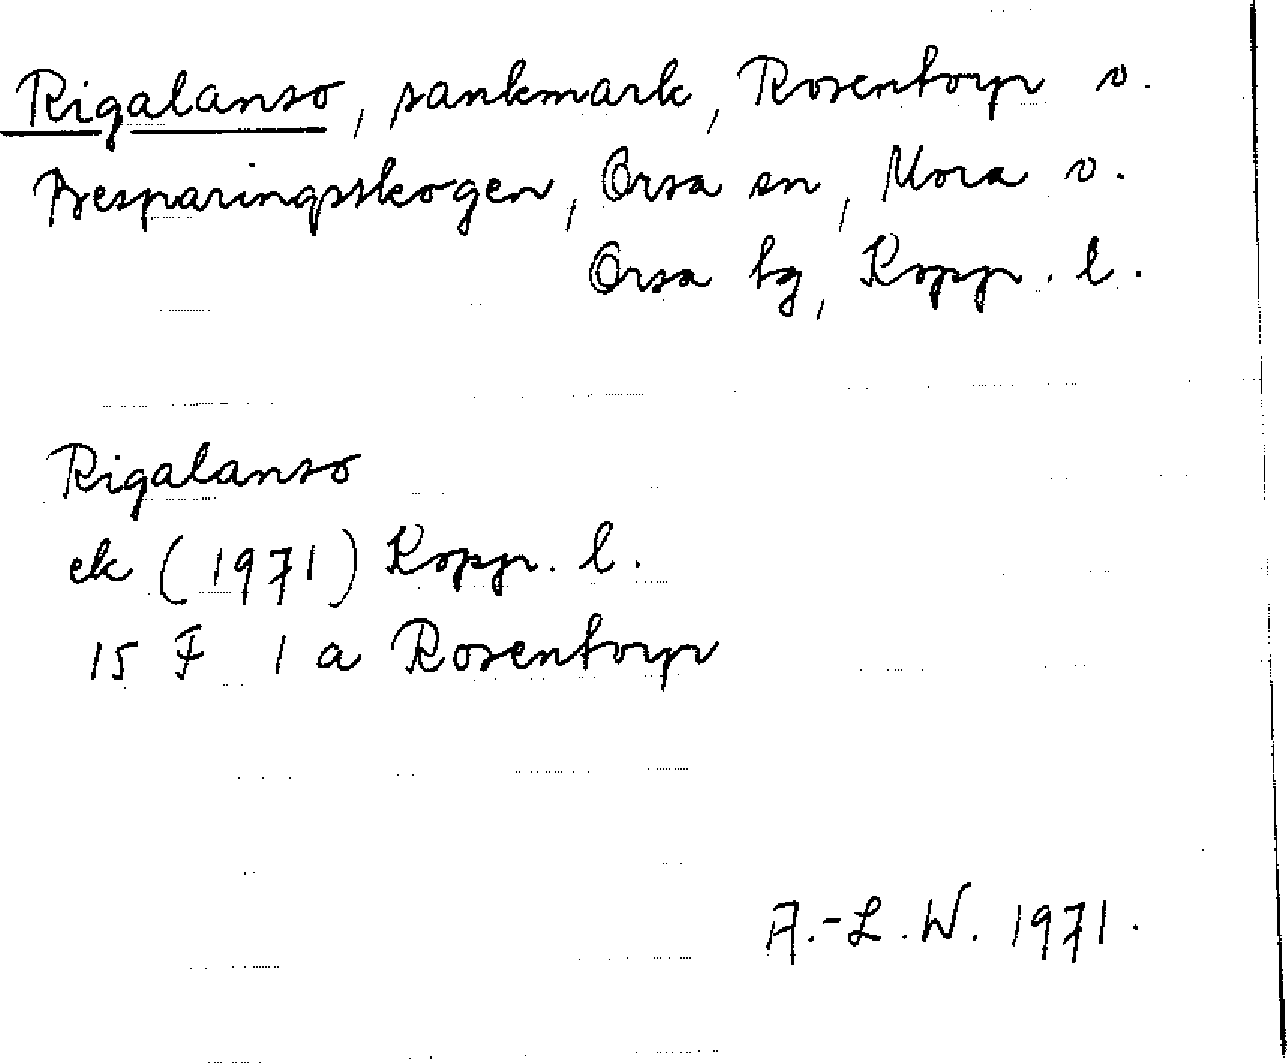 Rigalanso, sankmark, Rosentorp o.
Besparingsskogen, Orsa sn, Mora o.
Orsa tg, Kopp. l.
Rigalanso
ek (1971) Kopp. l.
15 F 1 a Rosentorp
A.-L.W. 1971.